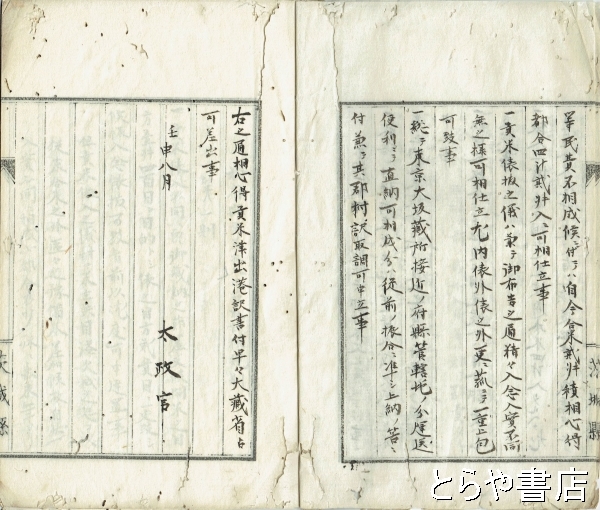 筆民費不相成候ニ付テハ自今合米貳升積相心得
都合四斗貳升入ニ可相仕立事
一貢米俵拵之儀ハ兼テ御布告之通精々入念入実不同
無之様可相仕立尤内俵外俵之外更ニ菰ニテ一重上包
可致事
一総テ東京大坂蔵所接近ノ府縣管轄地ノ分運送
便利ニテ直納可相成分ハ従前ノ振合ニ準シ上納苦
付兼テ其郡村訳取調可申立事
茨城縣
右之通相心得貢米津出港訳書付早々大蔵省ヘ
可差出事
壬申八月
太政官
茨城縣
とらや書店